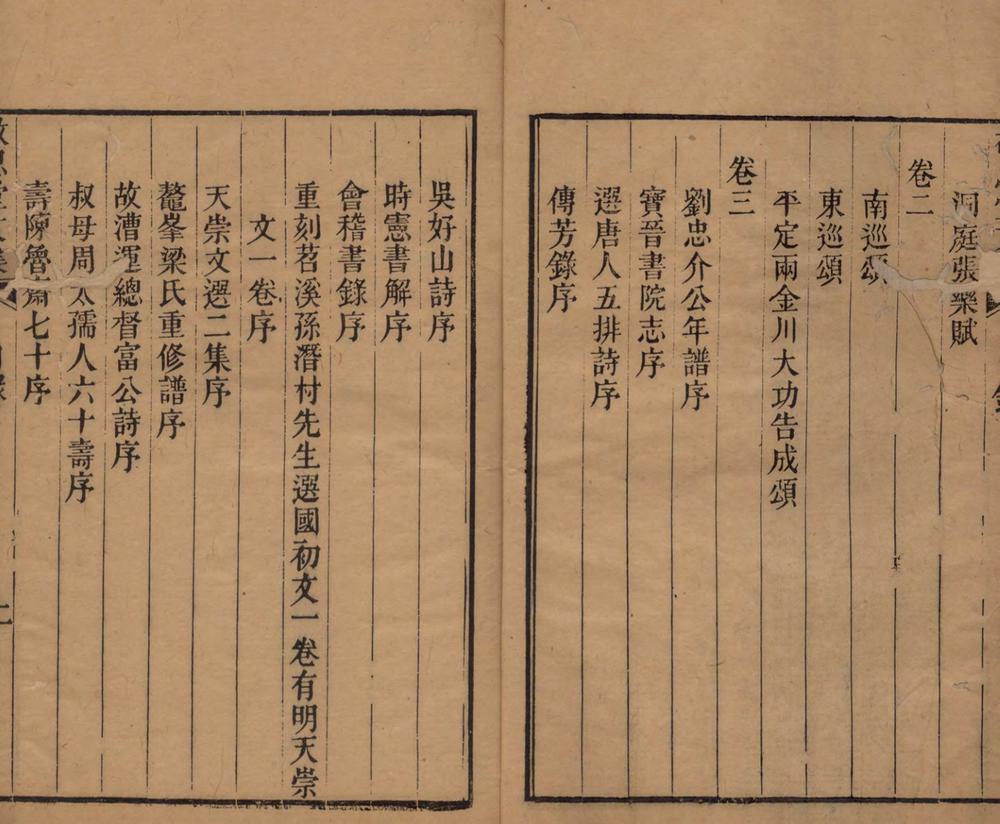 洞庭張樂賦
卷二
南巡頌
東巡頌
平定兩金川大功告成頌
卷三
劉忠介公年譜序
寶晉書院志序
選唐人五排詩序
傳芳錄序
吳好山詩序
時憲書解序
會稽書錄序
重刻苕溪孫潛村先生選國初文一卷有明天崇
文一卷序
天崇文選二集序
鼇峯梁氏重修譜序
故漕運總督富公詩序
叔母周太孺人六十壽序
壽陳魯齋七十序